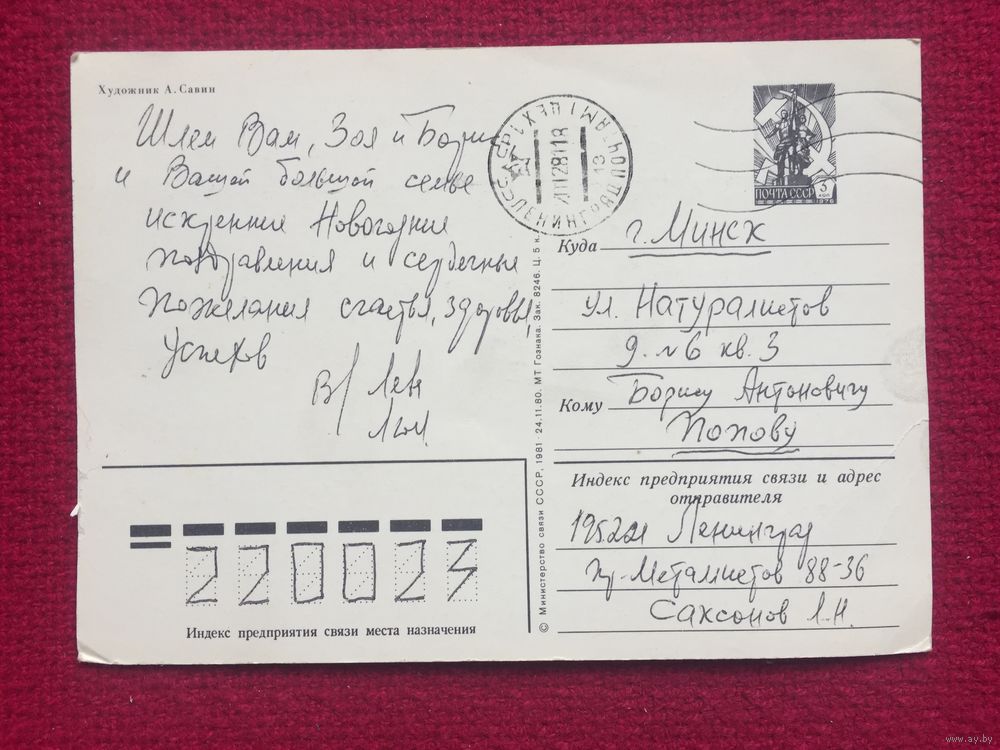 Художник А. Савин
Шлем Вам, Зоя и Борис
и Вашей большой семье
искренние Новогодние
поздравления и сердечные
пожелания счастья, здоровья,
успехов
ПОЧТА СССР
3 коп
1976
Куда г. Минск
ул. Натуралистов
д. №6 кв. 3
Кому Борису Антоновичу
Попову
Индекс предприятия связи и адрес
отправителя
Ленинград
пр. Металлистов 88-36
Саксонов Л.Н.
220023
Индекс предприятия связи места назначения
© Министерство связи СССР, 1981 24.11.80. МТ Гознака. Зак. 8246. Ц. 5 к.
www.ay.by